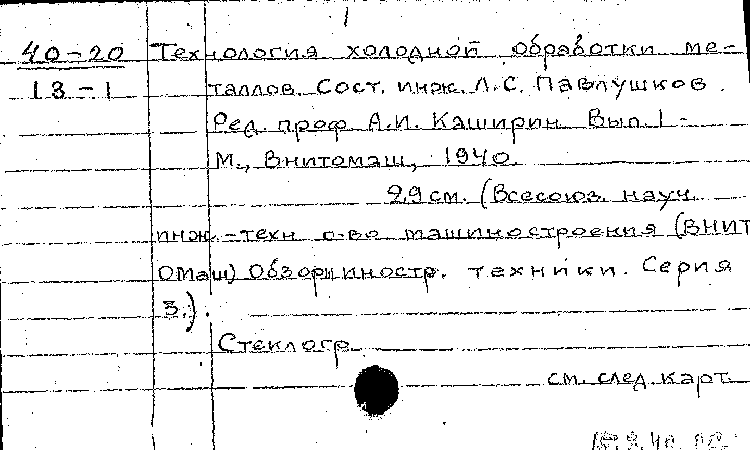 40-20
13-1
Технология холодной обработки ме-
таллов. Сост. инж. Л.С. Павлушков.
Ред. проф. А.И. Каширин. Вып. 1-
М., Внитомаш, 1940.
29 см. (Всесоюз. науч.
инж.-техн о-во машиностроения (ВНИТ
ОМаш) Обзоры иностр. техники. Серия
3.).
Стеклогр.
см. след. карт.